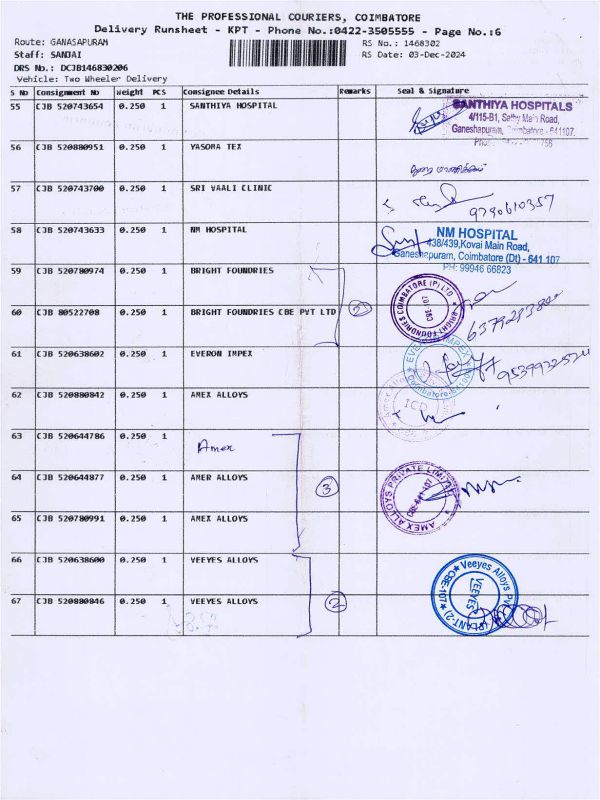 THE PROFESSIONAL COURIERS, COIMBATORE
Delivery Runsheet - KPT - Phone No.:0422-3505555 - Page No.:6
Route: GANASAPURAM
Staff: SANJAI
DRS No.: DCJB146830206
Vehicle: Two Wheeler Delivery
RS No.: 1468302
RS Date: 03-Dec-2024
S No Consignment No Weight PCS Consignee Details Remarks Seal & Signature
55 CJB 520743654 0.250 1 SANTHIYA HOSPITAL
SANTHIYA HOSPITALS
4/115-B1, Sathy Main Road,
Ganeshapuram, Coimbatore - 641107.
56 CJB 520880951 0.250 1 YASODA TEX
57 CJB 520743700 0.250 1 SRI VAALI CLINIC
9790610357
58 CJB 520743633 0.250 1 NM HOSPITAL
NM HOSPITAL
438/439,Kovai Main Road,
Ganeshapuram, Coimbatore (Dt) - 641 107
PH: 99946 66823
59 CJB 520780974 0.250 1 BRIGHT FOUNDRIES
60 CJB 80522708 0.250 1 BRIGHT FOUNDRIES CBE PVT LTD
2
BRIGHT FOUNDRIES COIMBATORE (P) LTD
CBE-107
61 CJB 520638602 0.250 1 EVERON IMPEX
62 CJB 520880842 0.250 1 AMEX ALLOYS
63 CJB 520644786 0.250 1 Amex
64 CJB 520644877 0.250 1 AMER ALLOYS
65 CJB 520780991 0.250 1 AMEX ALLOYS
3
AMEX ALLOYS PRIVATE LIMITED
66 CJB 520638600 0.250 1 VEEYES ALLOYS
67 CJB 520880846 0.250 1 VEEYES ALLOYS
2
Veeyes Alloys
VEEYES
CBE-107